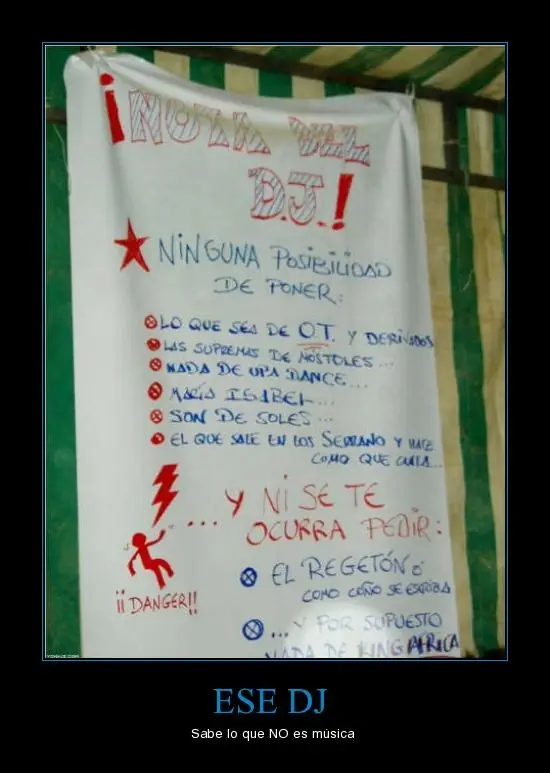 ¡NOTA DEL
D.J.!
NINGUNA POSIBILIDAD
DE PONER:
LO QUE SEA DE O.T. Y DERIVADOS
LAS SUPREMAS DE MÓSTOLES...
NADA DE UPA DANCE...
MARÍA ISABEL...
SON DE SOLES...
EL QUE SALE EN LOS SERRANO Y HACE
COMO QUE CANTA...
...Y NI SE TE
OCURRA PEDIR:
EL REGETÓN O
COMO COÑO SE ESCRIBA
¡¡DANGER!!
...Y POR SUPUESTO
NADA DE KING AFRICA
ESE DJ
Sabe lo que NO es música